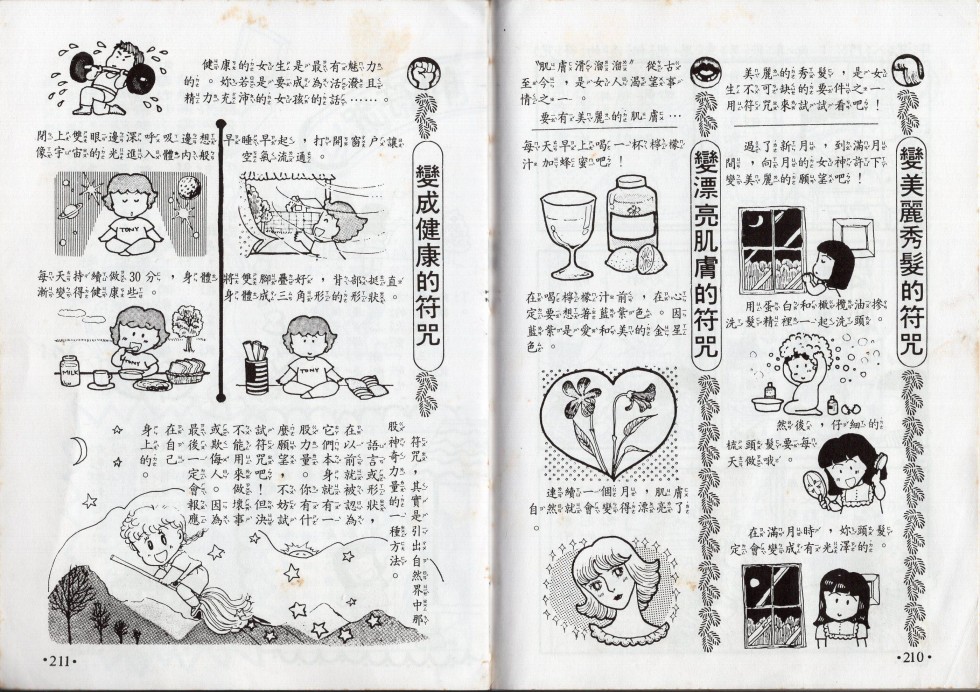 變美麗秀髮的符咒
美麗的秀髮，是女
生不可缺的要件之一
用符咒來試試看吧！
過了新月，到滿月
間，向月的女神許下
變美麗的願望吧！
用蛋白和橄欖油摻
洗髮精裡一起洗頭。
然後，仔細的
梳頭髮要每
天做哦。
在滿月時，妳頭髮
定會變成有光澤的。
變漂亮肌膚的符咒
〝肌膚滑溜溜〞從古
至今，是女人渴望事
情之一。
要有美麗的肌膚…
每天早上喝一杯檸檬
汁加蜂蜜吧！
在喝檸檬汁前，在心
定要想著藍紫色。因
藍紫是愛和美的金星
色。
連續一個月，肌膚
自然就會變得漂亮了
。
•210•
變成健康的符咒
健康的女生是最有魅力
的。妳若是要成為活潑且
精力充沛的女孩的話……。
早睡早起，打開窗户讓
空氣流通。
閉上雙眼邊深呼吸邊想
像宇宙的光進入體內般
TONY
將雙腳疊好，背部挺直
身體成三角形的形狀。
TONY
每天持續做30分，身體
漸變得健康些。
TONY
MILK
符咒，其實是引出自然界中那
股神奇力量的一種方法。
語言或形狀，
在以前就被認為
它們本身就有一
股力量。你有什
麼願望，不妨試
試符咒吧！但決
不能用來做壞事
或欺侮人。因為
最後一定會報應
在自己
身上的。
•211•